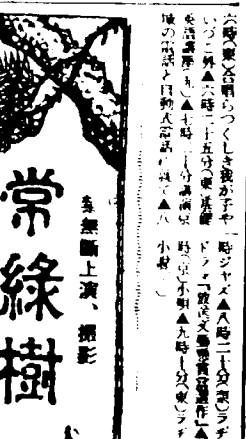 六時(東)合唱うつくしき我が子や
いづこ外▲六時二十五分(東)基礎
英語講座▲七時二十分講演京
城の電話と自動式電話に就て▲八
時ジャズ▲八時二十分(東)ラヂ
ドラマ「放送文藝懸賞當選作」▲
時(京)小唄▲九時十分(東)ラヂ
無斷上演、撮影
常綠樹